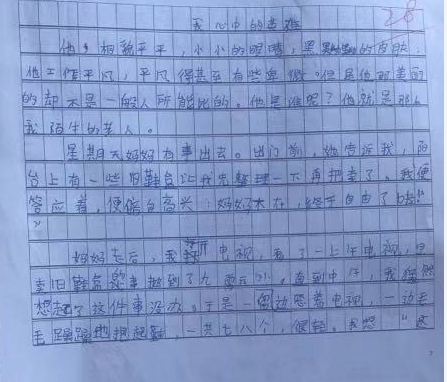 我心中的英雄
28
他,相貌平平,小小的眼睛,黑黝黝的皮肤,
他工作平凡,平凡得甚至有些卑微。但是他的美
的却不是一般人所能比的。他是谁呢?他就是那
我陌生的 人。
星期天妈妈有事出去。出门前,她告诉我,阳
台上有一些旧鞋盒让我先整理一下再把卖了。我便
答应着,便 自高兴:妈妈不在,终于自由了
妈妈走后,我 开电视,看了一上午电视,
卖旧鞋盒的事抛到了九霄云外。直到中午,我 然
想起了这件事没办。于是一 边 着电视,一边毛
毛躁躁地把起鞋,一共七八个,很轻。我想"这